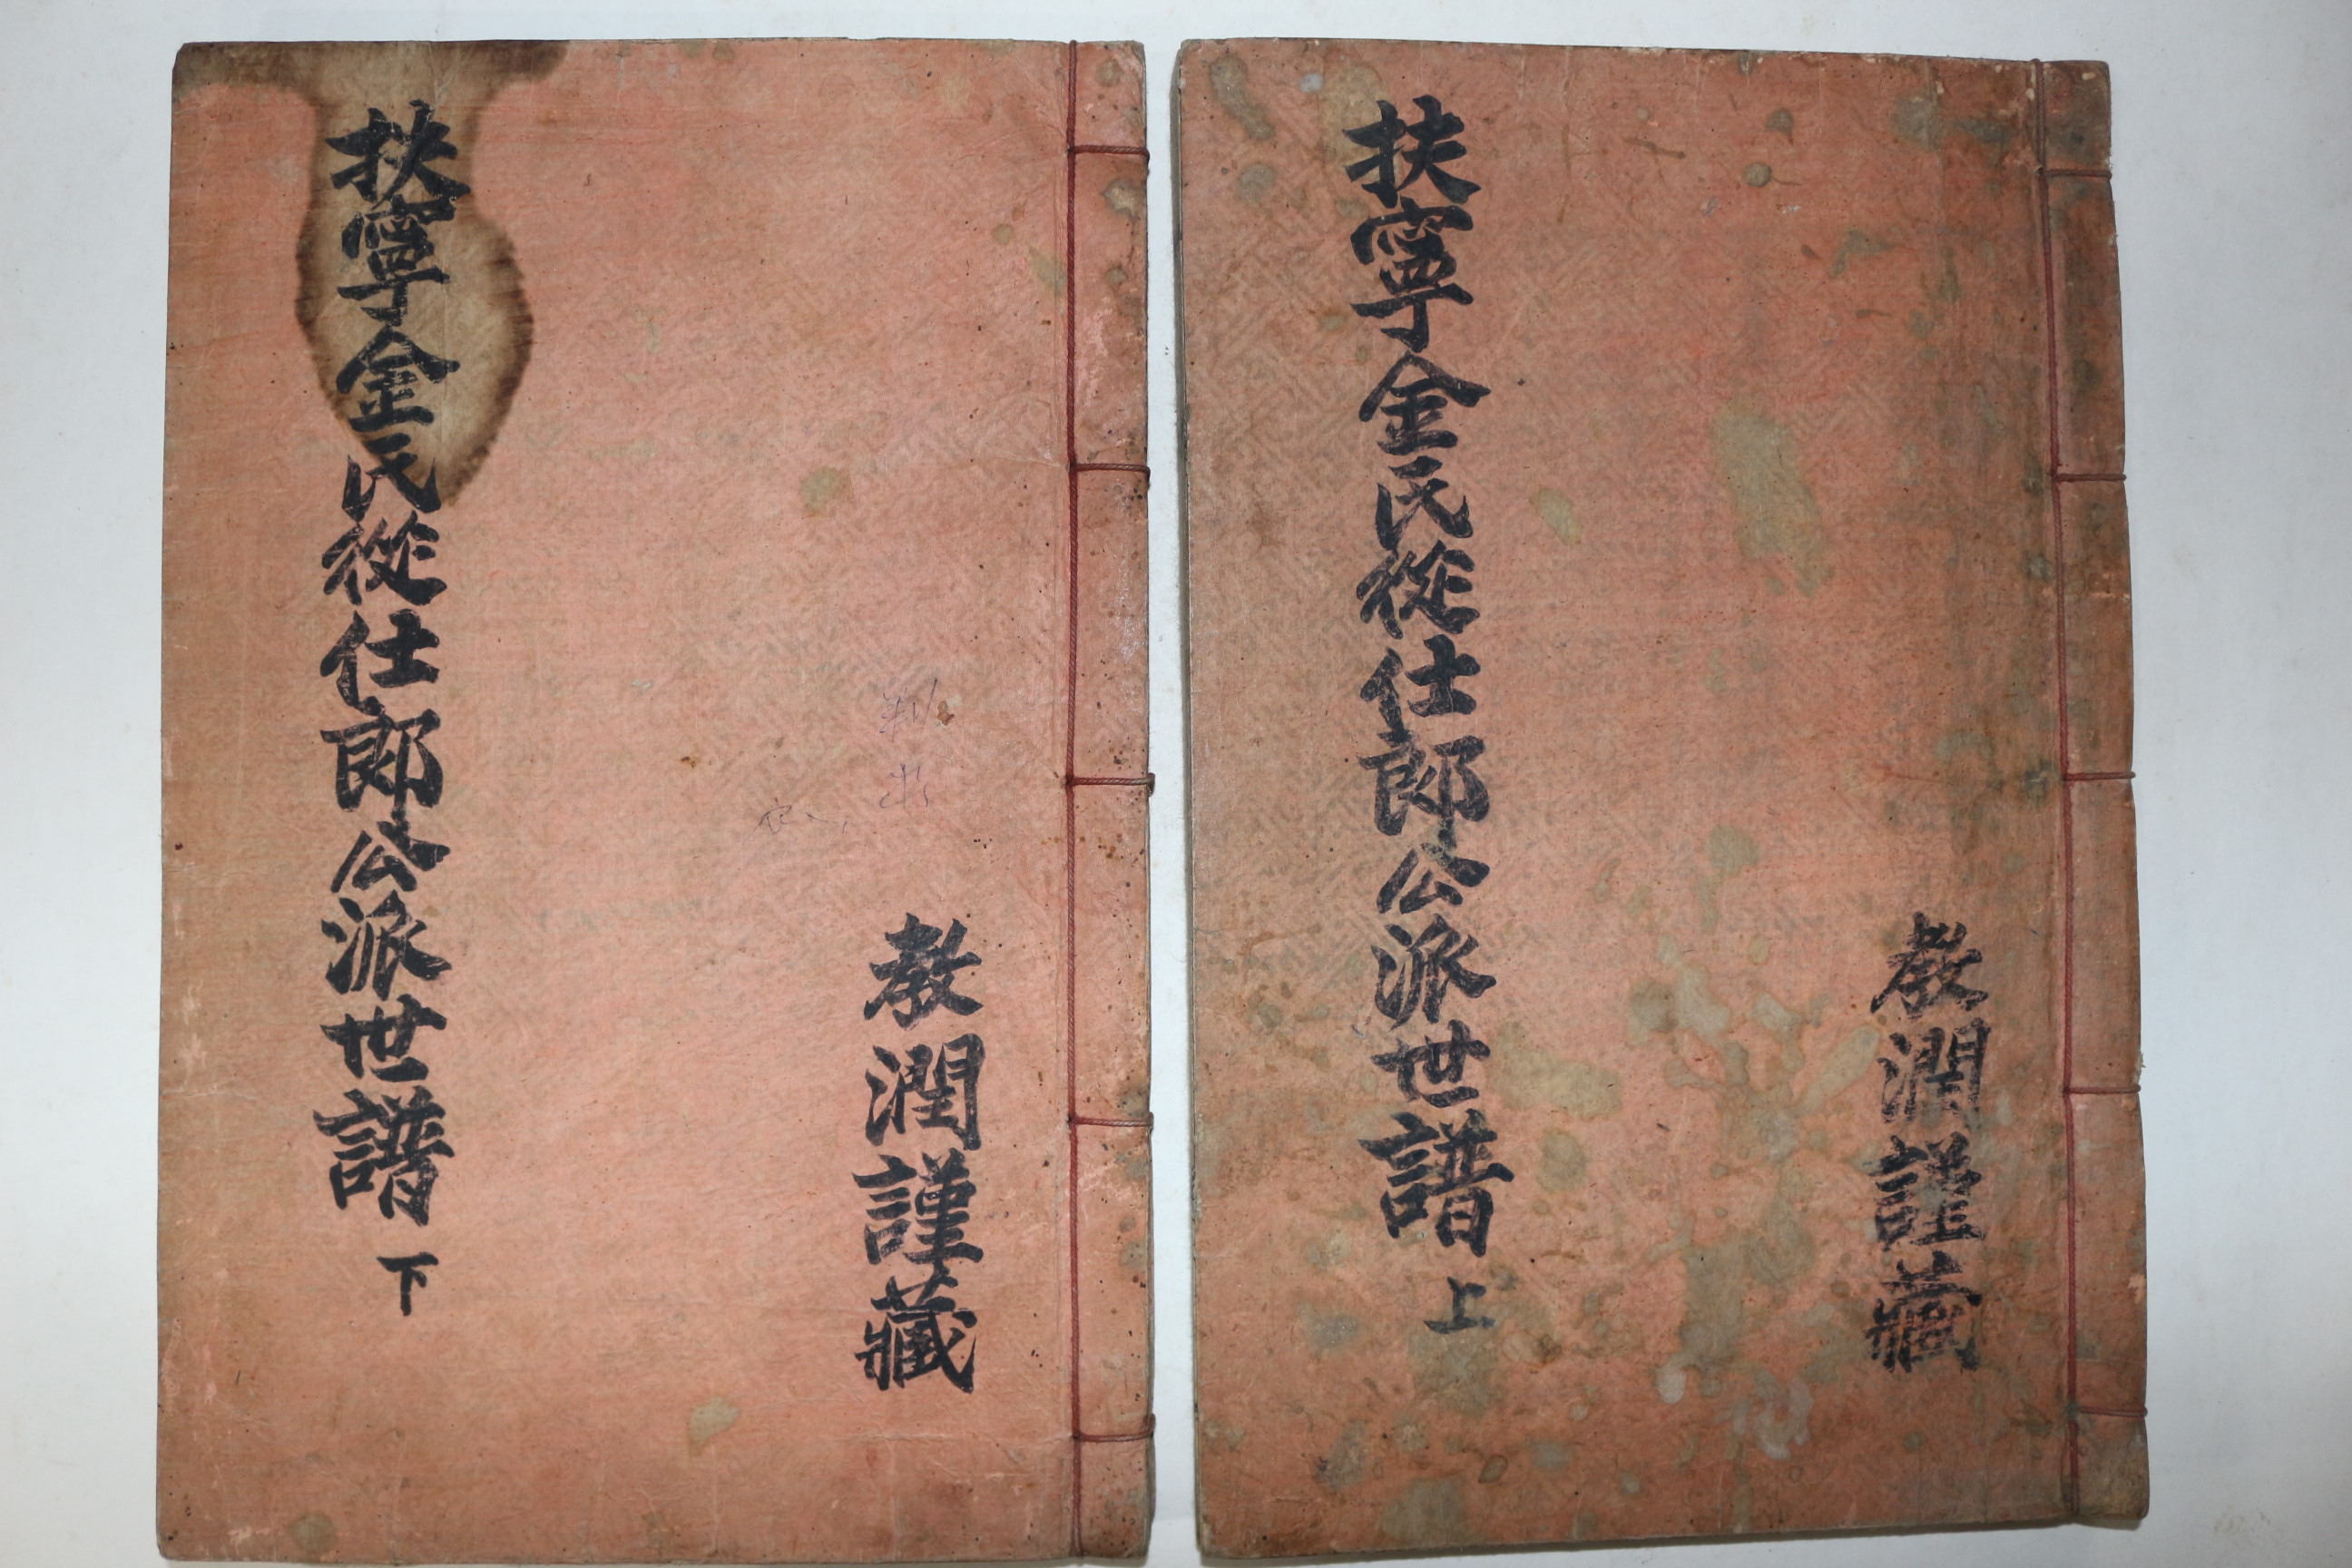 教潤謹藏
扶寧金氏從仕郎公派世譜 上
教潤謹藏
扶寧金氏從仕郎公派世譜 下